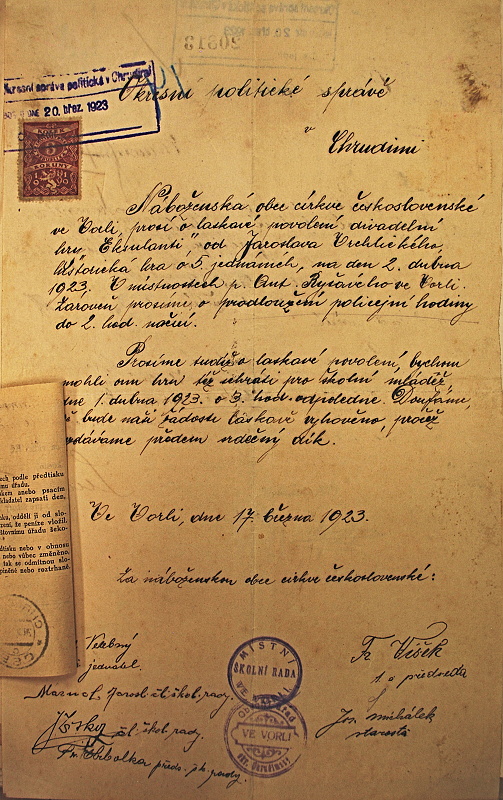 20813
Okresní správa politická v Chrudimi
DNE 20. břez. 1923
Okresní politické správě
v
Chrudimi
Náboženská obec církve československé
ve Vorli, prosí o laskavé povolení divadelní
hry „Eksulanti“ od Jaroslava Vrchlického,
historická hra o 5 jednáních, na den 2. dubna
1923. V místnostech p. Ant. Ryšavého ve Vorli.
Zároveň prosíme o prodloužení policejní hodiny
do 2. hod. noční.
Prosíme tudíž o laskavé povolení, bychom
mohli onu hru též sehráti pro školní mládež
dne 1. dubna 1923 o 3. hod. odpoledne. Doufáme,
bude naší žádosti laskavě vyhověno, pročež
předem srdečný dík.
Ve Vorli, dne 17. března 1923.
Za náboženskou obec církve československé:
Velebný
jednatel.
Fr. Víšek
předseda
Jarosl. čl. škol. rady.
čl. škol. rady.
Jos. Michálek
starosta
MÍSTNÍ
ŠKOLNÍ RADA
VE VORLI
VE VORLI
ech, podle předtisku
mu úřadu.
kem anebo psacím
kladatel zapsati den,
nku, oddělí ji od slo-
zení, že peníze vložil.
oštovnímu úřadu šeko-
dtisku nebo v obnosu
nebo vůbec změněno,
tak se odmítnou slo-
plněné nebo roztrhané.